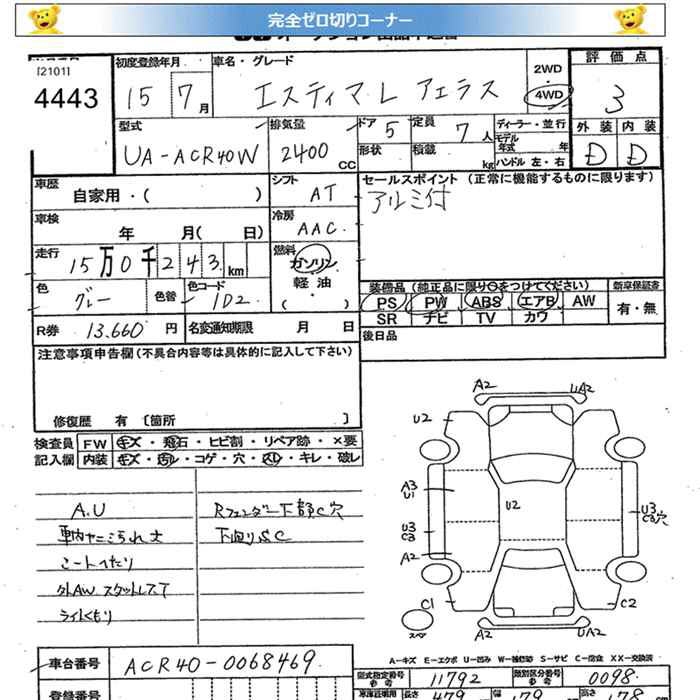 完全ゼロ切りコーナー
[2101]
4443
初度登録年月
15 7月
車名・グレード
エスティマ L アエラス
2WD
・
4WD
評価点
3
外装 内装
D D
型式
UA-ACR40W
排気量
2400 CC
ドア 5
形状
定員 7人
積載 kg
ディーラー・並行
モデル年式 年
ハンドル 左・右
車歴
自家用・( )
シフト
AT
セールスポイント (正常に機能するものに限ります)
アルミ付
車検
年 月( 日)
冷房
AAC
走行
15万0千243km
燃料
ガソリン
軽油
( ・ )
色
グレー
色替
色コード
1D2
装備品(純正品に限り○をつけてください)
PS PW ABS エアB AW
SR ナビ TV カワ
新車保証書
有・無
R券 13.660円
名変通知期限 月 日
後日品
注意事項申告欄(不具合内容等は具体的に記入して下さい)
修復歴 有 [箇所 ]
検査員
記入欄
FW キズ・飛石・ヒビ割・リペア跡・×要
内装 キズ・汚レ・コゲ・穴・スレ・キレ・破レ
A.U
車内ヤニこられ大
シートへたり
外AW スタットレスT
ライトくもり
Rフェンダー下部C穴
下回りSC
A2 UA2
U2
A3
U1
U2
U3
C3
U3
C3穴
A2
C1
C2
スペア
A2 UA2
A-キズ E-エクボ U-凹み W-補修跡 S-サビ C-腐食 XX-交換済
車台番号 ACR40-0068469
型式指定番号 参考 11792
類別区分番号 参考 0098
登録番号
長さ 479
幅 179
高さ 178 cm